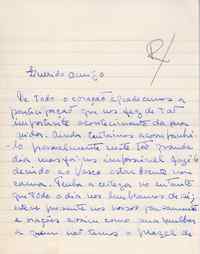 R/
Querido amigo
De todo o coração agradecemos a
participação que nos fez de tão
importante acontecimento da sua
vida. Ainda tentámos acompanhá-
-lo pessoalmente neste tão grande
dia mas foi-nos impossível fazê-lo
devido ao Vasco estar doente na
cama. Tenha a certeza no entanto
que todo o dia nos lembramos de si,
esteve presente nos nossos pensamentos
e orações assim como sua mulher
a quem não temos o prazer de